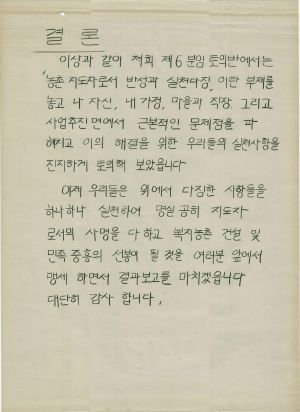 결 론
이상과 같이 저희 제6분임 토의반에서는
"농촌 지도자로서 반성과 실천다짐" 이란 부제를
놓고 나 자신, 내 가정, 마을과 직장 그리고
사업추진면에서 근본적인 문제점을 파
헤치고 이의 해결을 위한 우리들의 실천사항을
진지하게 토의해 보았읍니다
이제 우리들은 위에서 다짐한 사항들을
하나하나 실천하여 명실공히 지도자
로서의 사명을 다하고 복지농촌 건설 및
민족중흥의 선봉이 될 것을 여러분 앞에서
맹세 하면서 결과보고를 마치겠읍니다
대단히 감사 합니다.